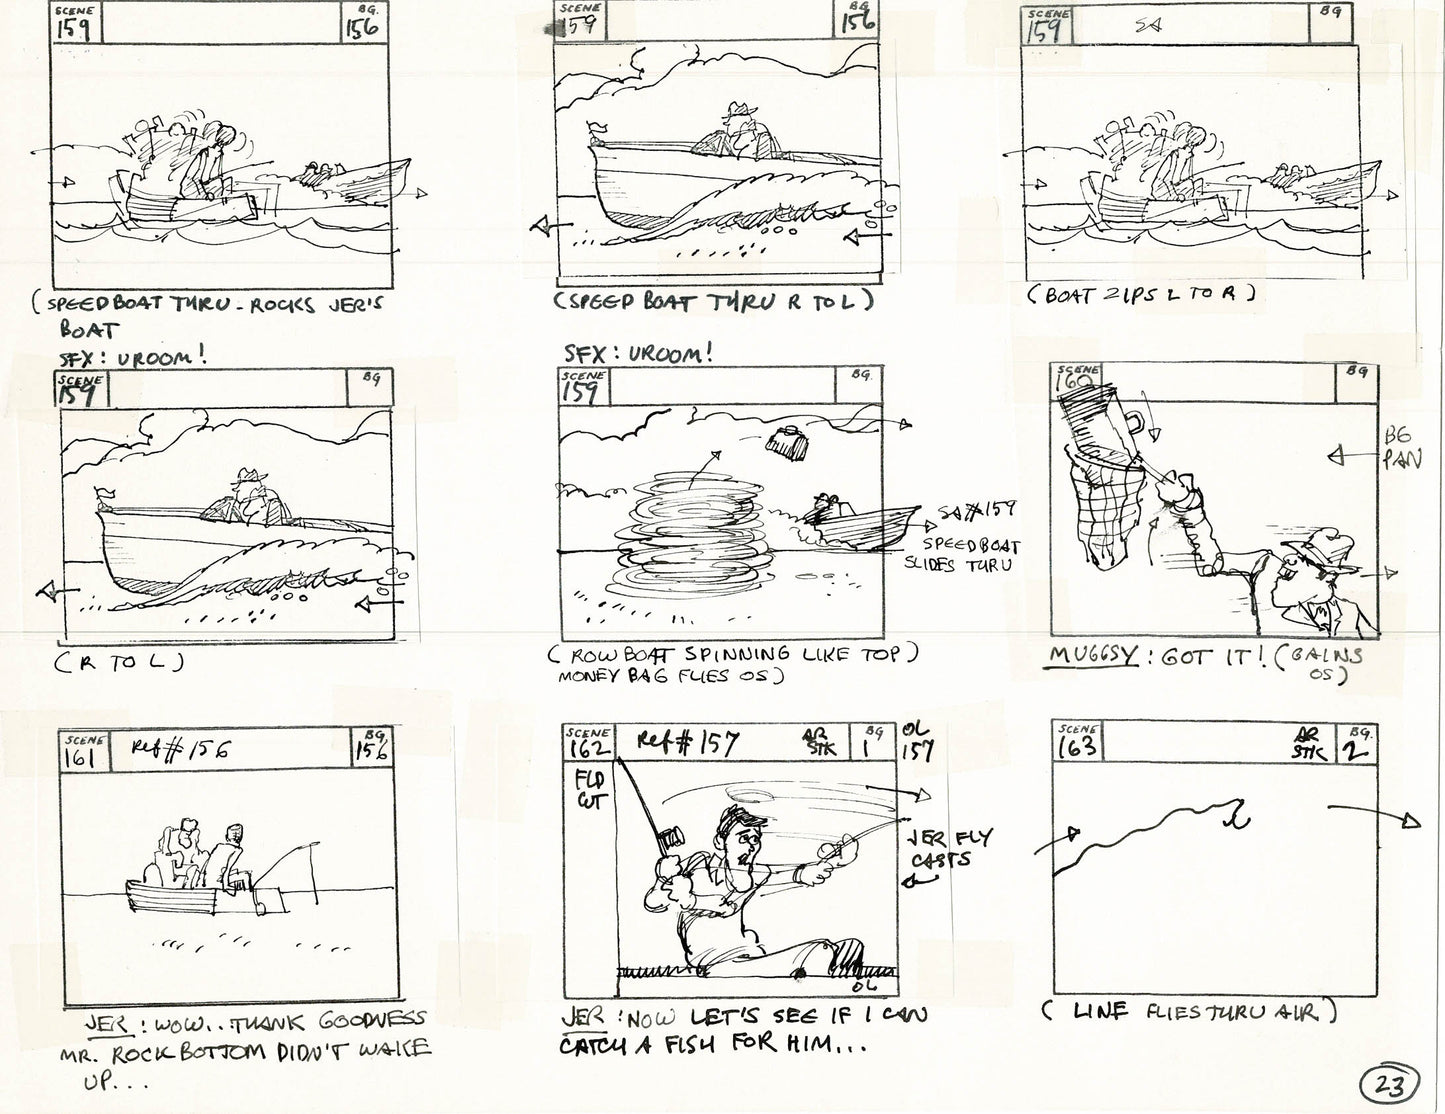 SCENE
159
BG.
156
(SPEEDBOAT THRU - ROCKS JER'S
BOAT
SFX: VROOM!
SCENE
159
BG.
156
(SPEED BOAT THRU R TO L)
SFX: VROOM!
SCENE
159
SA
BG
(BOAT ZIPS L TO R)
SCENE
159
BG
(R TO L)
SCENE
159
BG.
SA#159
SPEEDBOAT
SLIDES THRU
(ROWBOAT SPINNING LIKE TOP)
MONEY BAG FLIES OS)
SCENE
160
BG
BG
PAN
MUGGSY: GOT IT! (GAINS
OS)
SCENE
161
Ref# 156
BG.
156
JER: WOW.. THANK GOODNESS
MR. ROCKBOTTOM DIDN'T WAKE
UP...
SCENE
162
Ref# 157
AR
STK
BG
1
OL
157
FLD
CUT
JER FLY
CASTS
OL
JER: NOW LET'S SEE IF I CAN
CATCH A FISH FOR HIM...
SCENE
163
AR
STK
BG.
2
(LINE FLIES THRU AIR)
23